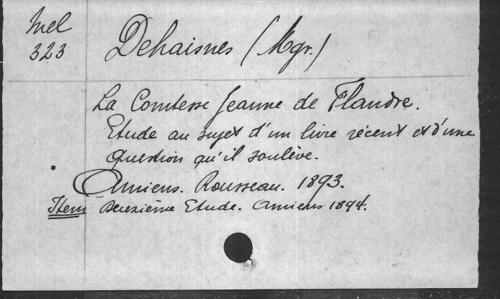 Mel
323
Dehaisnes (Mgr.)
La Comtesse Jeanne de Flandre.
Etude au sujet d'un livre récent et d'une
question qu'il soulève.
Amiens. Rousseau. 1893.
Item Deuxième Etude. Amiens 1894.